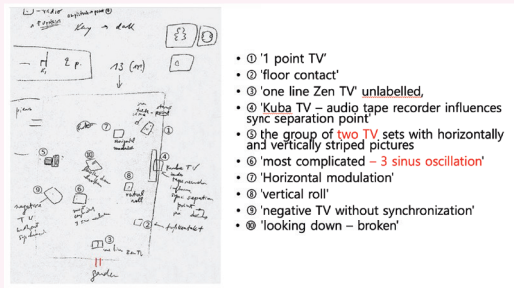 key → dark
2 p.
13 (m)
piano
①
⑦
horizontal
modulation
⑤
④
Kuba TV
⑩
⑧
vertical
roll
⑨
⑥
negative
TV
without
②
foot contact
③
one line Zen TV
garden
• ① '1 point TV'
• ② 'floor contact'
• ③ 'one line Zen TV' unlabelled,
• ④ 'Kuba TV – audio tape recorder influences
sync separation point'
• ⑤ the group of two TV sets with horizontally
and vertically striped pictures
• ⑥ 'most complicated – 3 sinus oscillation'
• ⑦ 'Horizontal modulation'
• ⑧ 'vertical roll'
• ⑨ 'negative TV without synchronization'
• ⑩ 'looking down – broken'